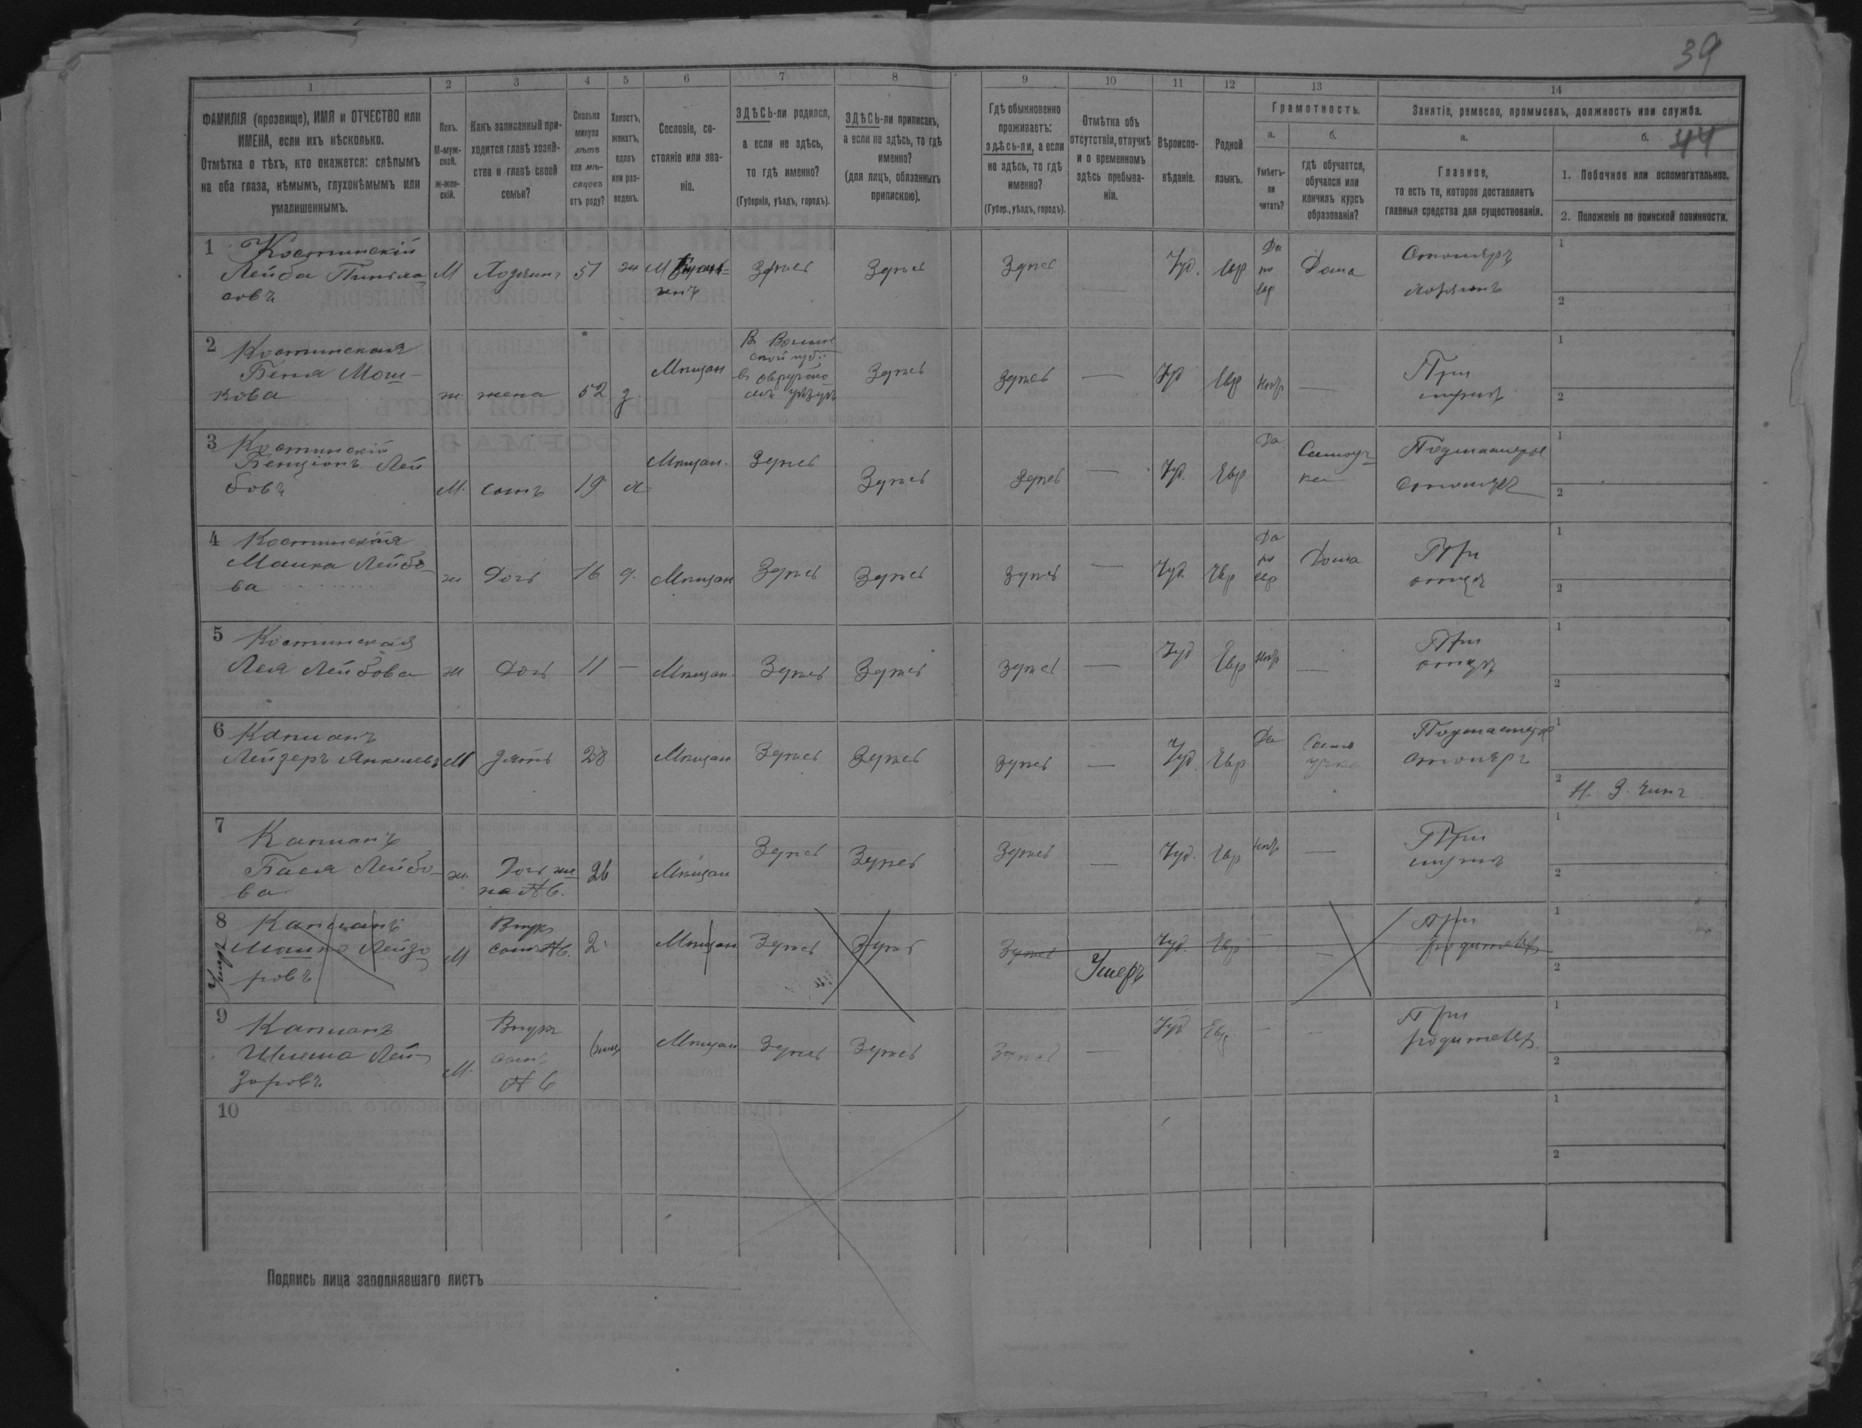 39
44
1 2 3 4 5 6 7 8 9 10 11 12 13 14
ФАМИЛІЯ (прозвище), ИМЯ и ОТЧЕСТВО или ИМЕНА, если ихъ нѣсколько.
Отмѣтка о тѣхъ, кто окажется: слѣпымъ на оба глаза, нѣмымъ, глухонѣмымъ или умалишеннымъ.
Полъ. М-мужской. Ж-женскій.
Какъ записанный приходится главѣ хозяйства и главѣ своей семьи?
Сколько минуло лѣтъ или мѣсяцевъ отъ роду?
Холостъ, женатъ, вдовъ или разведенъ.
Сословіе, состояніе или званіе.
ЗДѢСЬ-ли родился, а если не здѣсь, то гдѣ именно?
(Губернія, уѣздъ, городъ).
ЗДѢСЬ-ли приписанъ, а если не здѣсь, то гдѣ именно?
(для лицъ, обязанныхъ припискою).
Гдѣ обыкновенно проживаетъ: здѣсь-ли, а если не здѣсь, то гдѣ именно?
(Губер., уѣздъ, городъ).
Отмѣтка объ отсутствіи, отлучкѣ и о временномъ здѣсь пребываніи.
Вѣроисповѣданіе.
Родной языкъ.
Грамотность.
а. Умѣетъ-ли читать?
б. гдѣ обучается, обучался или кончилъ курсъ образованія?
Занятіе, ремесло, промыселъ, должность или служба.
а. Главное, то есть то, которое доставляетъ главныя средства для существованія.
б.
1. Побочное или вспомогательное.
2. Положеніе по воинской повинности.
1 Костинскій
Лейба
М Хозяинъ 51 ж М Здѣсь Здѣсь Здѣсь Іуд. Евр Да по евр Дома Столяръ
1
2
2 Костинская
Беня Мош-
кова
ж жена 52 з Мѣщан Здѣсь Здѣсь — Іуд Евр Нѣт — При мужѣ
1
2
3 Костинскій
Бенціонъ Лей
бовъ
М. сынъ 19 х Мѣщан. Здѣсь Здѣсь Здѣсь — Іуд. Евр Да Самоуч-ка Подмастерье столяра
1
2
4 Костинская
Лейбо-
ва
ж Дочь 16 д. Мѣщан Здѣсь Здѣсь Здѣсь — Іуд. Евр Да по евр Дома При отцѣ
1
2
5 Костинская
Лея Лейбова
ж Дочь 11 — Мѣщан. Здѣсь Здѣсь Здѣсь — Іуд Евр Нѣт — При отцѣ
1
2
6 Капланъ
Лейзеръ Янкелевъ
М зять 28 Мѣщан Здѣсь Здѣсь Здѣсь — Іуд. Евр Да Само учка Подмастерье столяръ
1
2 Н. З. Чинъ
7 Капланъ
Бася Лейбо-
ва
ж. Дочь жена №6. 26 Мѣщан Здѣсь Здѣсь Здѣсь — Іуд. Евр Нѣт — При мужѣ
1
2
8 Капланъ
Лейзе
ровъ
Умеръ
М Внукъ сынъ №6. 2 Мѣщан Здѣсь Здѣсь Здѣсь Умеръ Іуд. Евр — При родителяхъ
1
2
9 Капланъ
Шлема Лей-
зеровъ
М. Внукъ сынъ №6 Мѣщан Здѣсь Здѣсь Здѣсь — Іуд Евр — — При родителях
1
2
10
1
2
Подпись лица заполнявшаго листъ